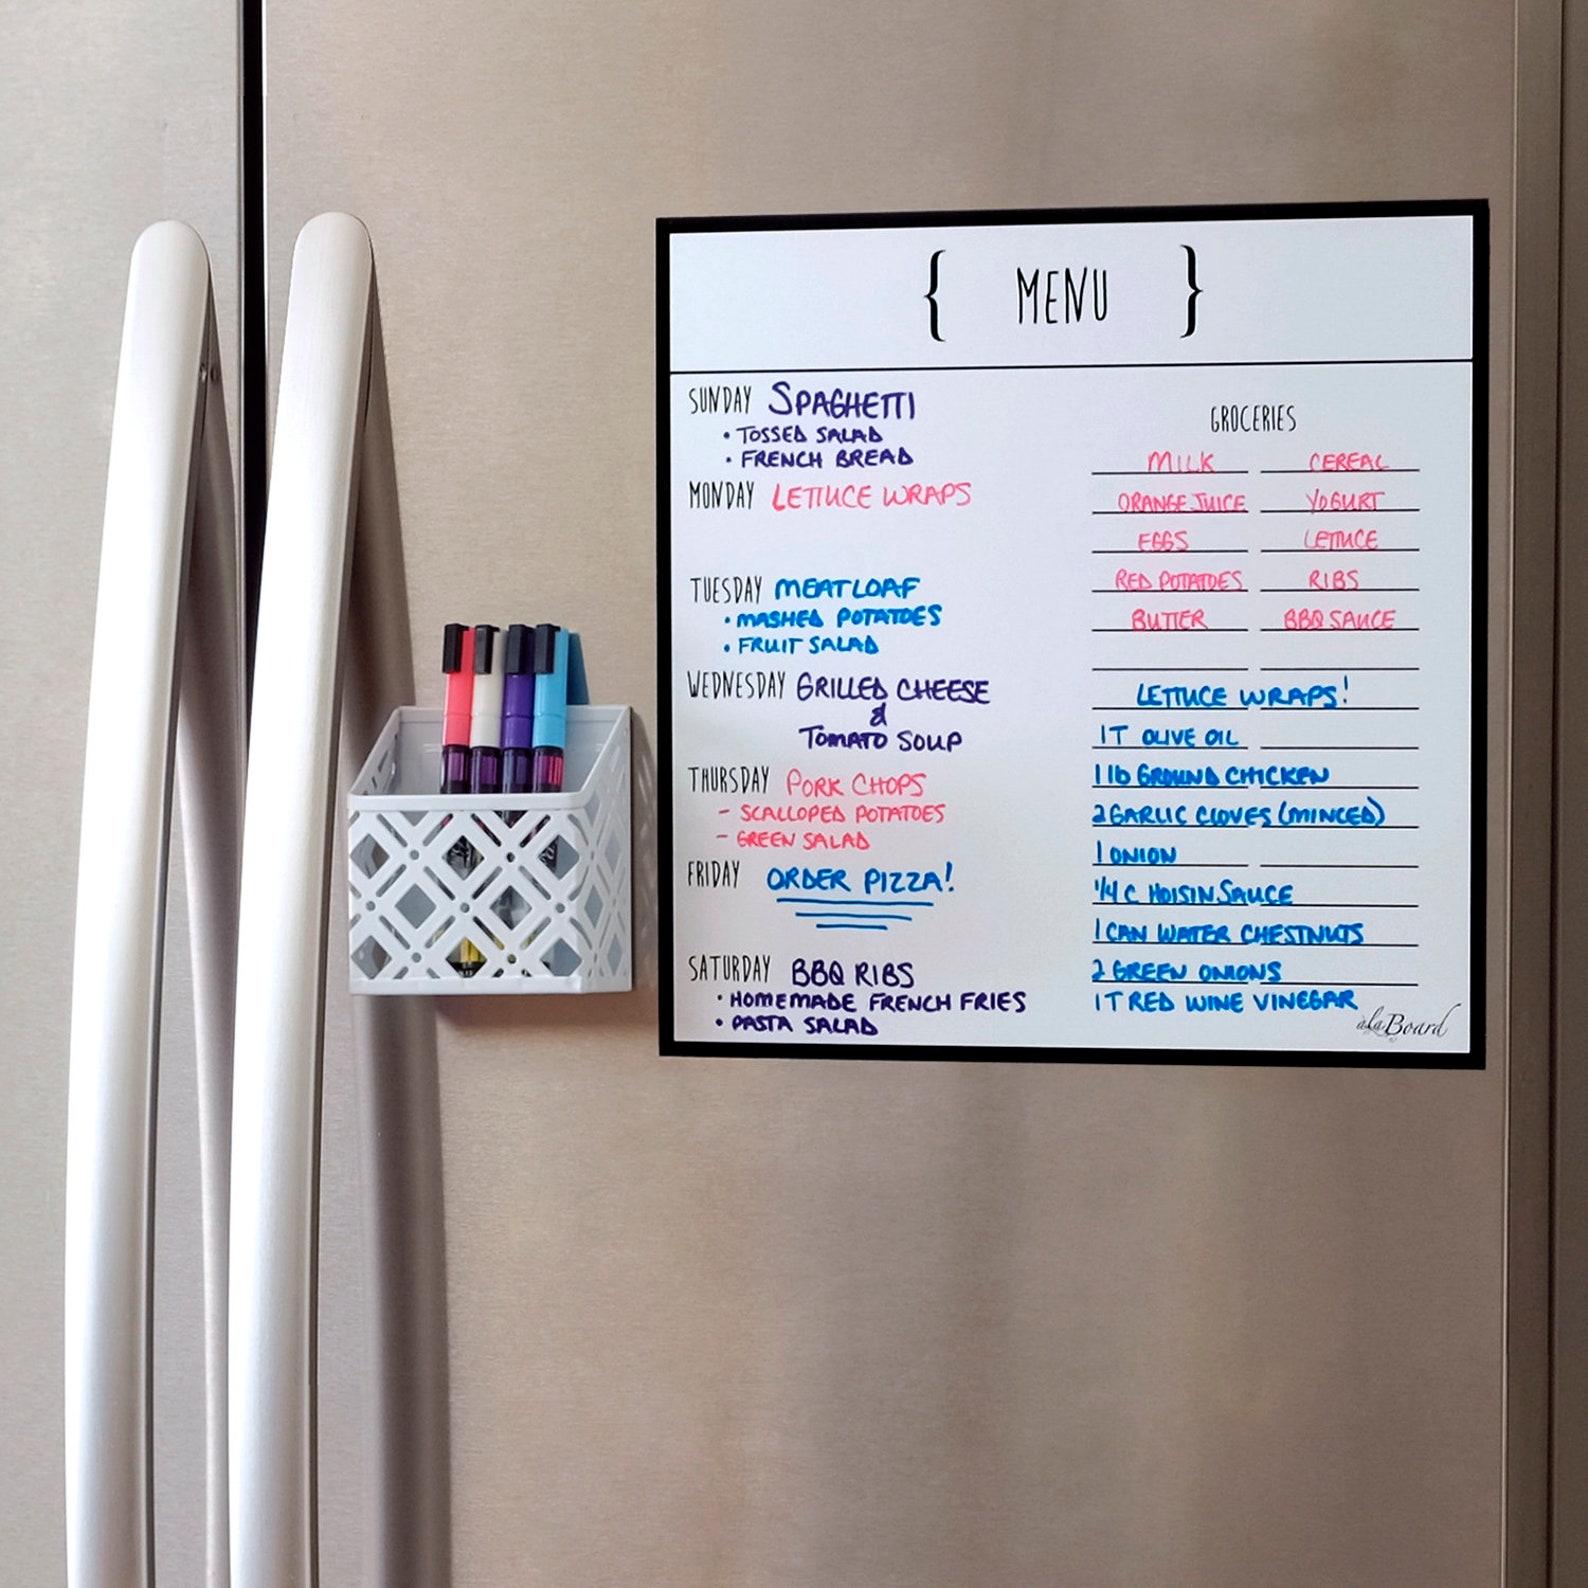 { MENU }
SUNDAY SPAGHETTI
• TOSSED SALAD
• FRENCH BREAD
MONDAY LETTUCE WRAPS
TUESDAY MEATLOAF
• MASHED POTATOES
• FRUIT SALAD
WEDNESDAY GRILLED CHEESE
&
TOMATO SOUP
THURSDAY PORK CHOPS
- SCALLOPED POTATOES
- GREEN SALAD
FRIDAY ORDER PIZZA!
SATURDAY BBQ RIBS
• HOMEMADE FRENCH FRIES
• PASTA SALAD
GROCERIES
MILK CEREAL
ORANGE JUICE YOGURT
EGGS LETTUCE
RED POTATOES RIBS
BUTTER BBQ SAUCE
LETTUCE WRAPS!
1 T OLIVE OIL
1 lb GROUND CHICKEN
2 GARLIC CLOVES (MINCED)
1 ONION
1/4 C HOISIN SAUCE
1 CAN WATER CHESTNUTS
2 GREEN ONIONS
1 T RED WINE VINEGAR
àlaBoard